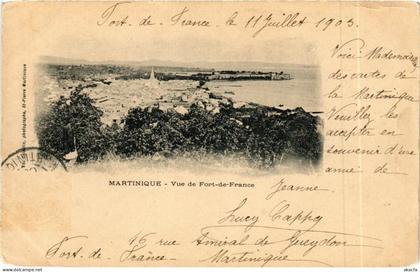 Fort-de-France le 11 Juillet 1903.
Voici Mademoiselle
des cartes de
la Martinique
Veuillez les
accepter en
souvenir d'une
amie de
Jeanne
MARTINIQUE - Vue de Fort-de-France
Lucy Cappy
16 rue Amiral de Gueydon
Fort-de-France - Martinique
photographe, St-Pierre Martinique
www.delcampe.net